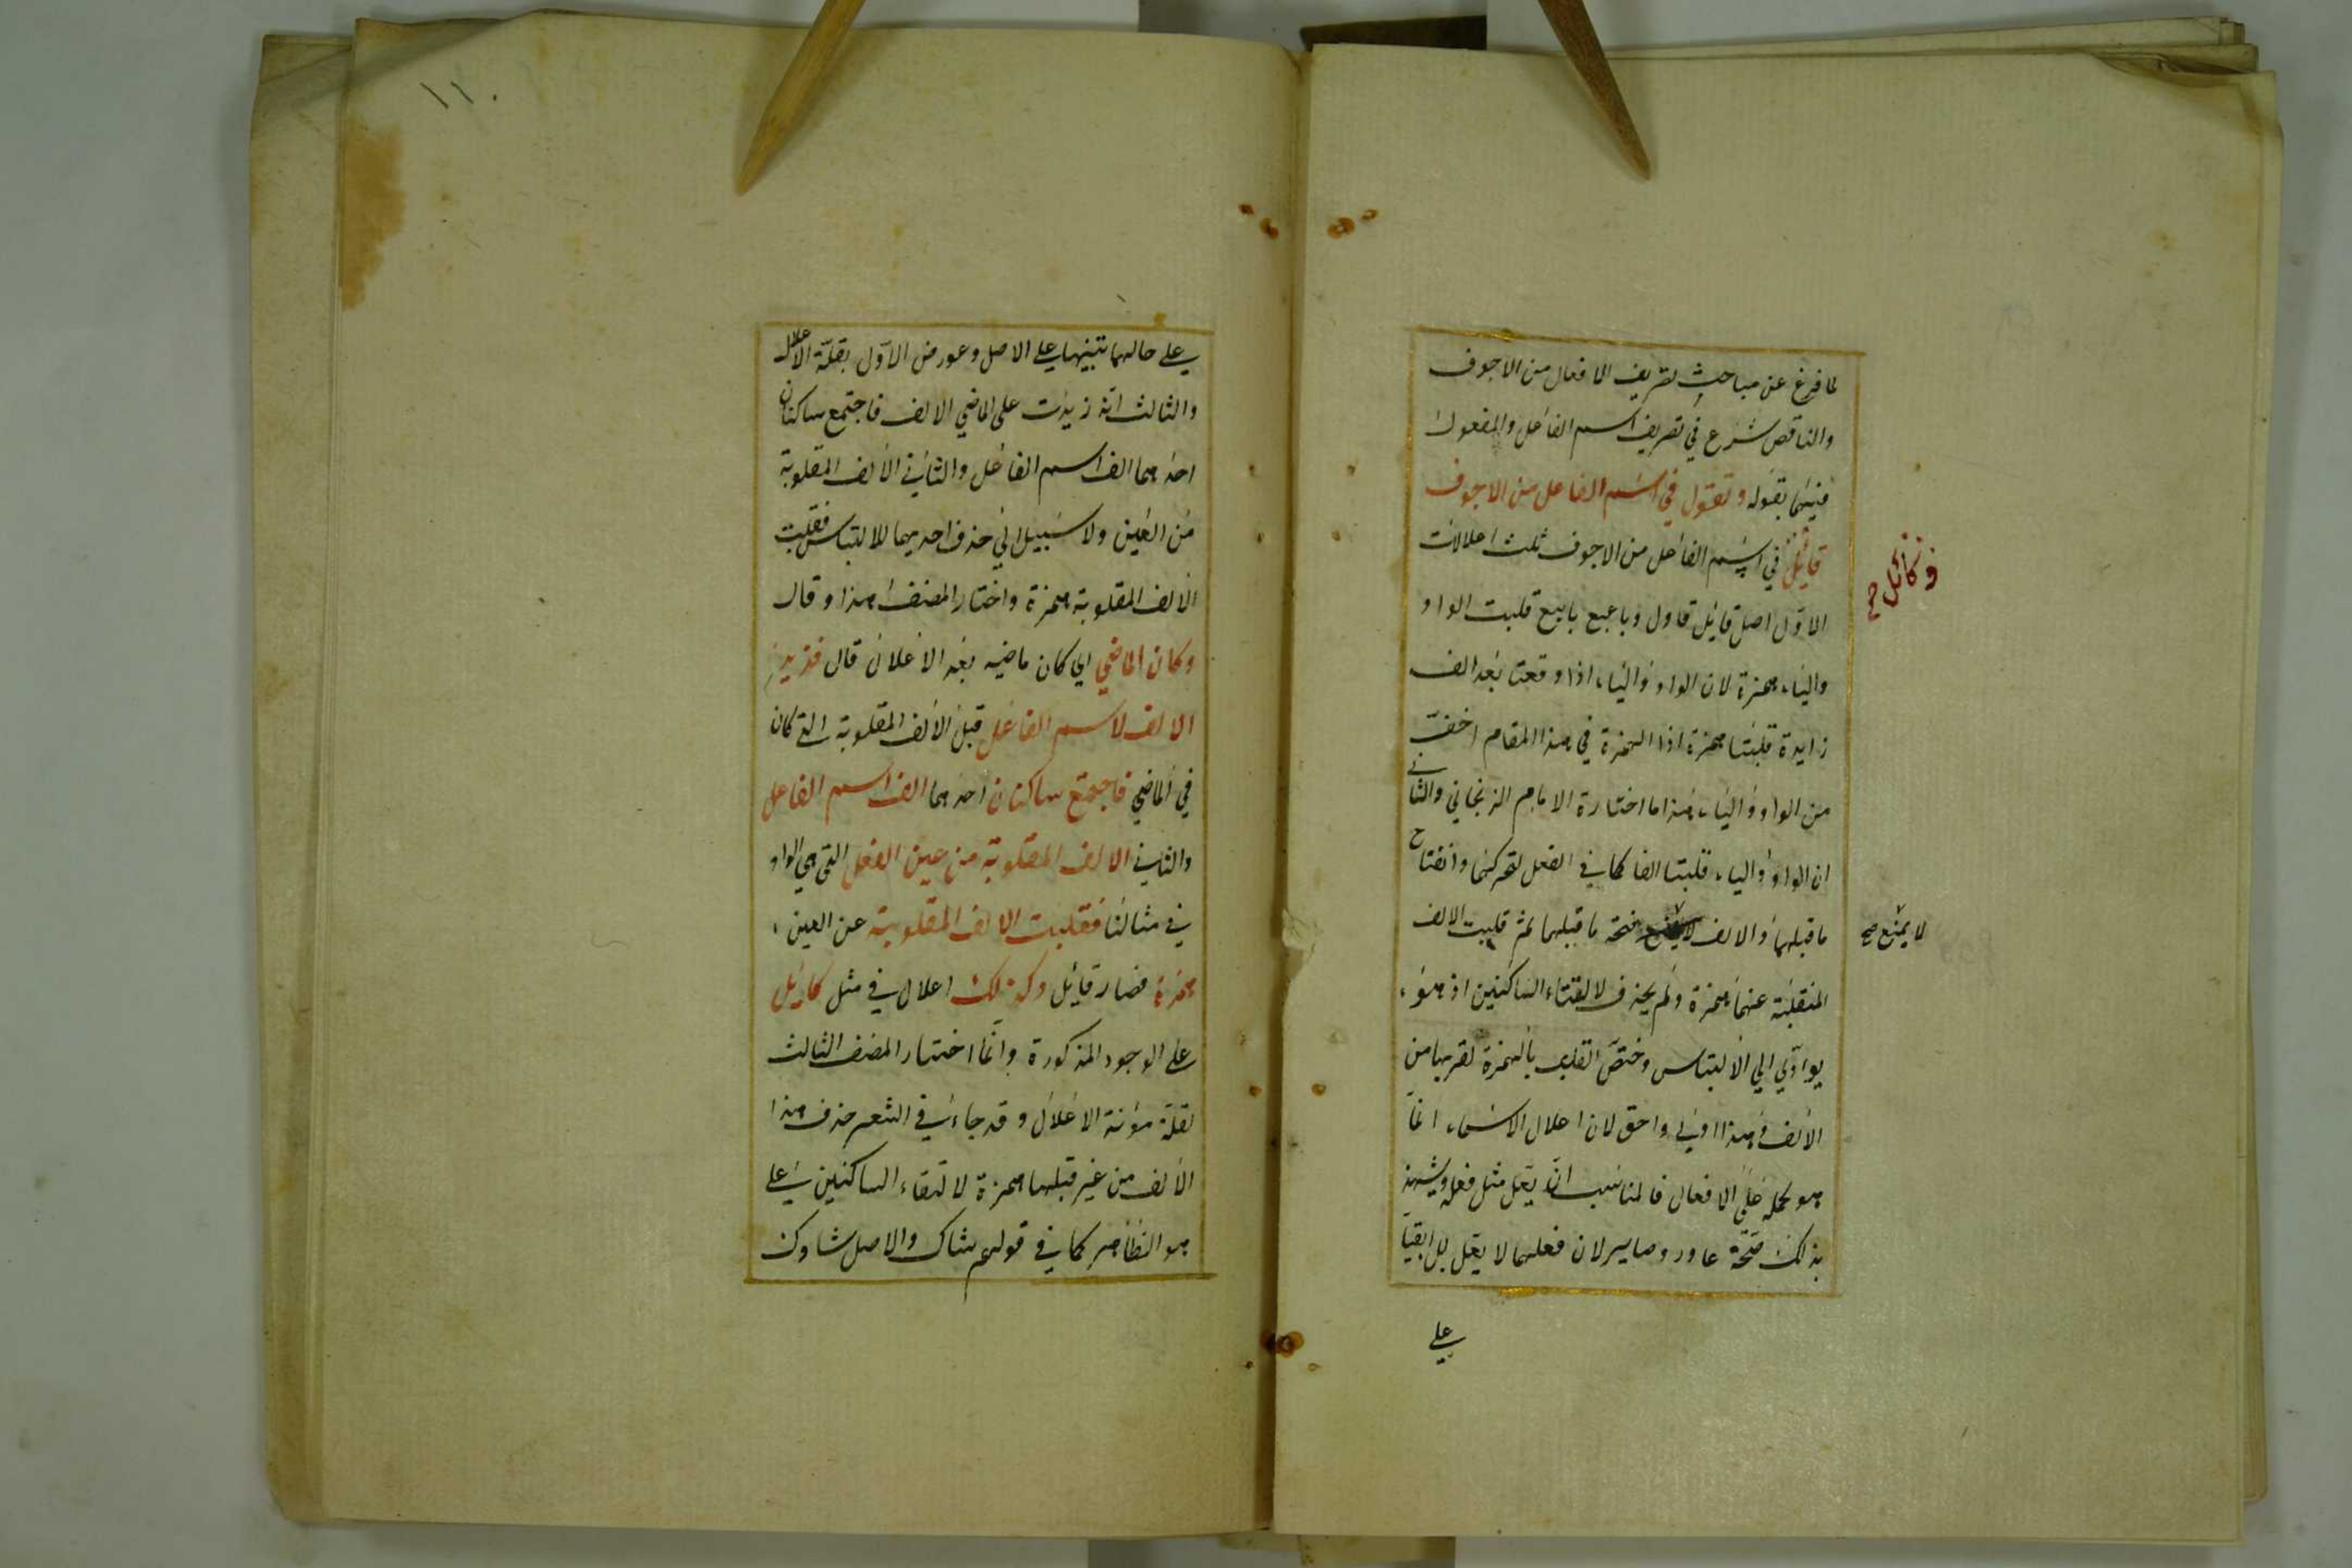 لما فرغ عن مباحث تصريف الافعال من الاجوف
والناقص شرع في تصريف اسم الفاعل والمفعول
فيهما بقوله وتقول في اسم الفاعل من الاجوف
قايل في اسم الفاعل من الاجوف ثلث اعلالات
وكائل صح
الاول اصل قايل قاول وبايع قلبت الواو
والياء همزة لان الواو والياء اذا وقعتا بعد الف
زايدة قلبتا همزة اذا الهمزة في هذا المقام اخف
من الواو والياء هذا ما اختارة الامام الزنجاني والثاني
ان الواو والياء قلبتا الفا كما في الفعل لتحركهما وانفتاح
ما قبلهما والالف فتحة ما قبلهما ثم قلبت الالف
لا يمنع صح
المنقلبة عنهما همزة ولم يحذف لالتقاء الساكنين اذ هو
يؤدي الي الالتباس وختص القلب بالهمزة لقربها من
الالف وهذا اولي واحق لان اعلال الاسماء انما
هو لحمله علي الافعال فالمناسب ان يعل مثل فعله ويشهد
بذلك صحة عاور وصايير لان فعلهما لا يعل بل ابقيا
علي
١١٠
علي حالهما تنبيها علي الاصل وعورض الاول بقلة الاعلال
والثالث انه زيدت علي الماضي الالف فاجتمع ساكنان
احدهما الف اسم الفاعل والثاني الالف المقلوبة
من العين ولا سبيل الي حذف احديهما للالتباس فقلبت
الالف المقلوبة همزة واختار المصنف هذا وقال
وكان الماضي اي كان ماضيه بعد الاعلال قال فزيد
الالف لاسم الفاعل قبل الالف المقلوبة التي كان
في الماضي فاجتمع ساكنان احدهما الف اسم الفاعل
والثاني الالف المقلوبة من عين الفعل التي هي الواو
في مثالنا فقلبت الالف المقلوبة عن العين
همزة فصار قايل وكذلك اعلال في مثل كايل
علي الوجوه المذكورة وانما اختار المصنف الثالث
لقلة مؤنة الاعلال وقد جاء في الشعر حذف هذا
الالف من غير قبلها همزة لالتقاء الساكنين علي
هو الظاهر كما في قولهم شاك والاصل شاوك